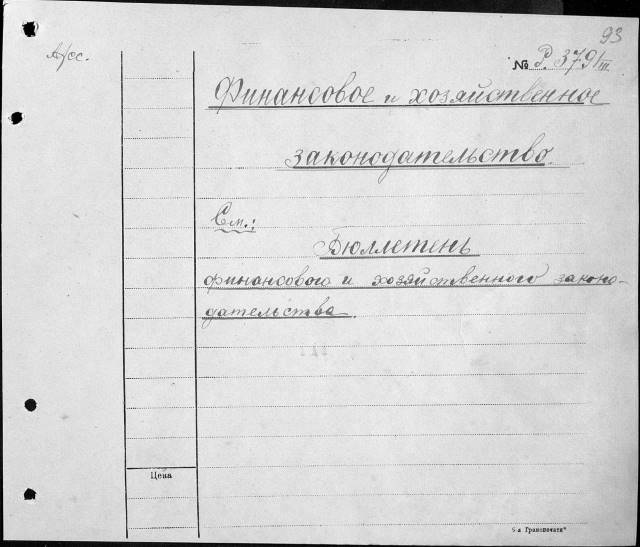 93
№ Р. 379/III.
Финансовое и хозяйственное
законодательство.
См.:
Бюллетень
финансового и хозяйственного законо-
дательства.
Цена